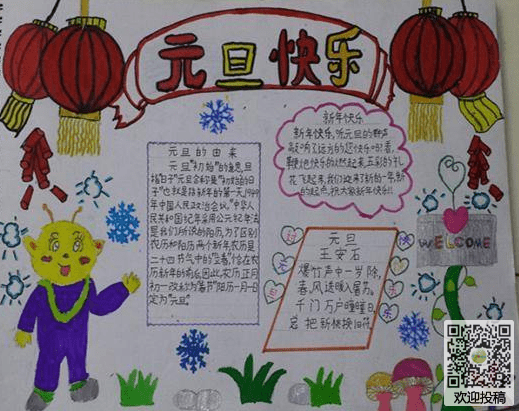 元旦快乐
元旦的由来
元旦"初始"的意思,旦
指"日子"元旦合称是"初始的日
子"也就是指新年的第一天,1949
年中国人民政治会议,"中华人
民共和国纪年采用公元纪年法
是我们所说的阳历,为了区别
农历和阳历两个新年,农历是
二十四节气中的"立春"恰在农
历新年的前后,因此,农历正月
初一改称为"春节"阳历一月一日
定为"元旦"
新年快乐
新年快乐,听元旦的钟声
敲响了
花飞起来,我们迎来了新的一年,新
的起点,祝大家新年快乐!!
元旦
王安石
爆竹声中一岁除,
春风送暖入屠苏。
千门万户曈曈日,
总把新桃换旧符。
元
旦
快
乐
WELCOME
欢迎投稿